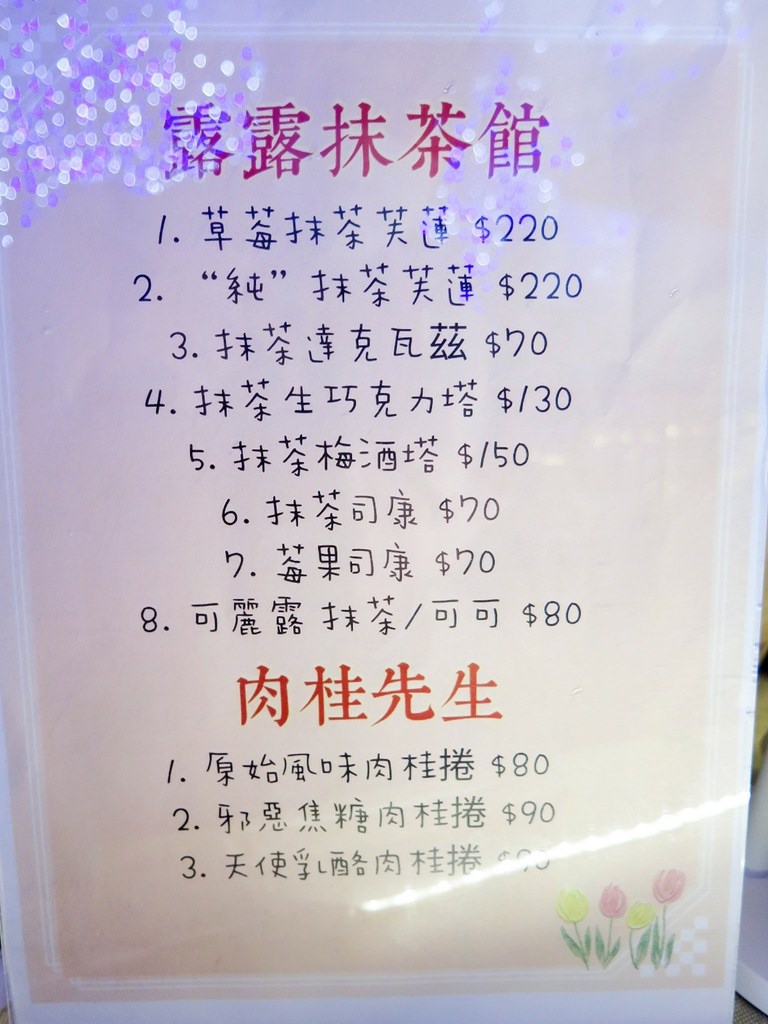 露露抹茶館
1. 草莓抹茶芙蓮 $220
2. “純” 抹茶芙蓮 $220
3. 抹茶達克瓦茲 $70
4. 抹茶生巧克力塔 $130
5. 抹茶梅酒塔 $150
6. 抹茶司康 $70
7. 莓果司康 $70
8. 可麗露 抹茶/可可 $80
肉桂先生
1. 原始風味肉桂捲 $80
2. 邪惡焦糖肉桂捲 $90
3. 天使乳酪肉桂捲 $90